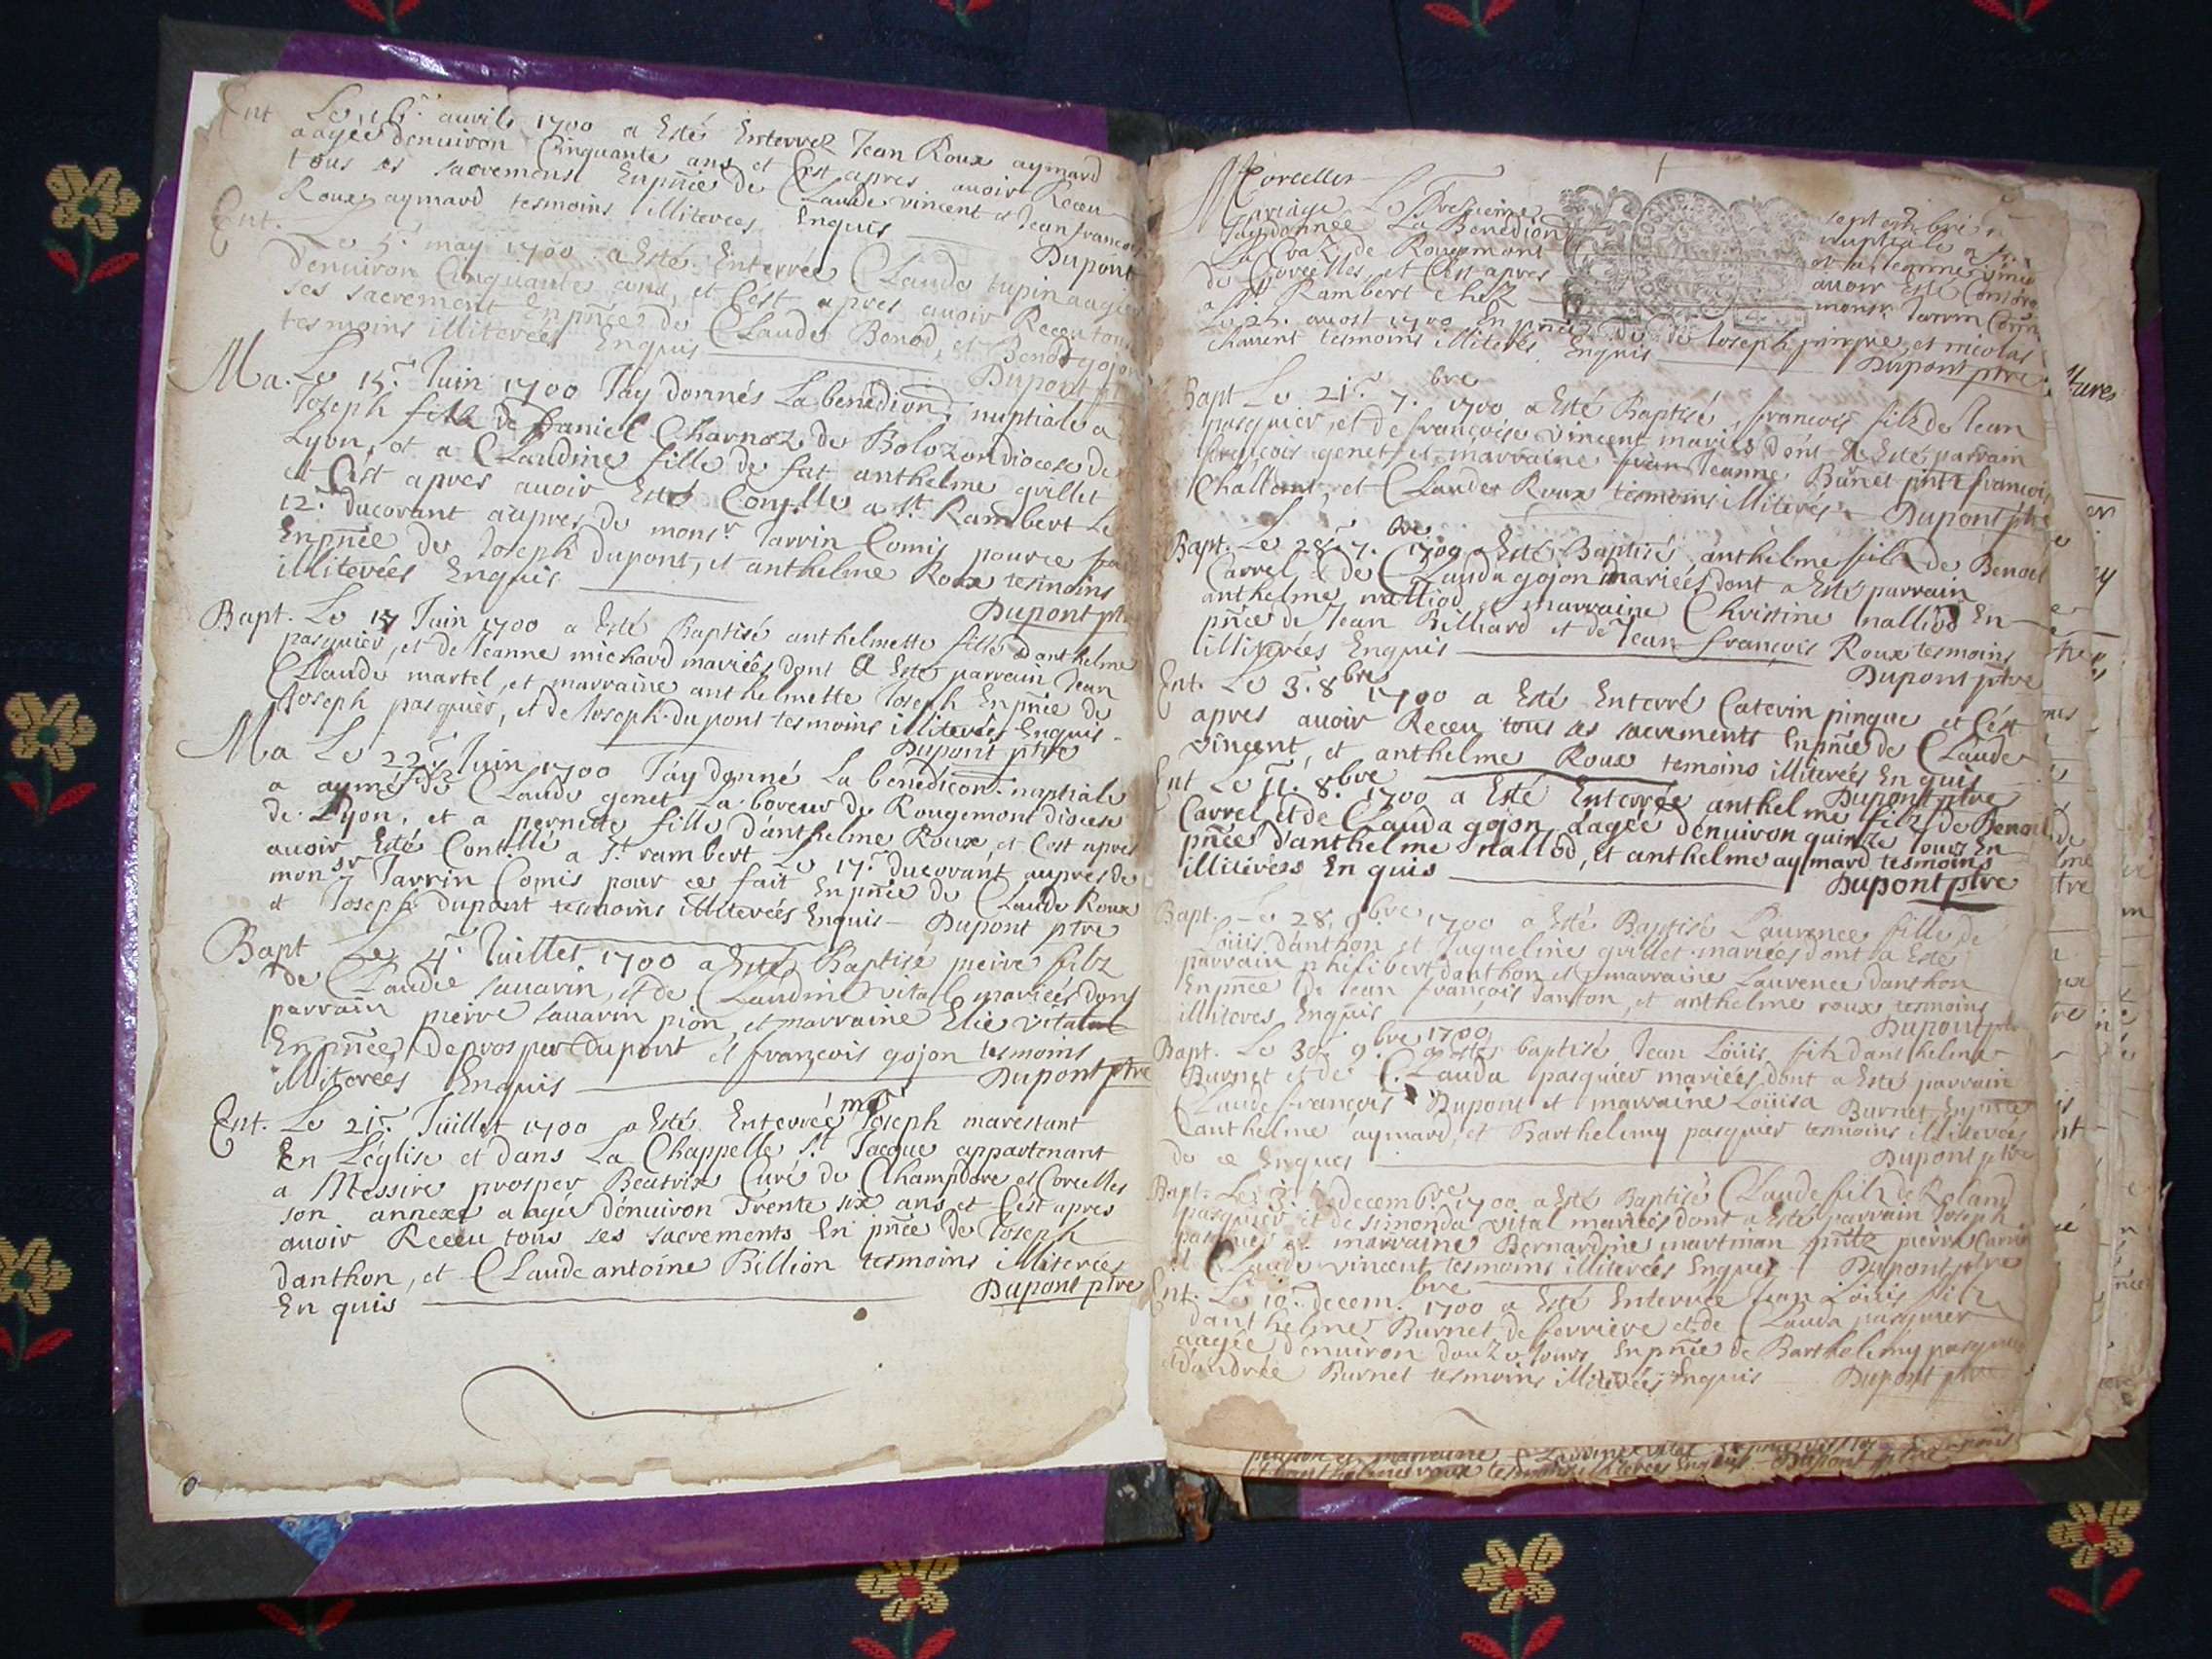 Ent Le 16.e auril 1700 a Esté Enterrez Jean Roux aymard
aagée denuiron Cinquante ans et C'est apres auoir Receu
tous ses sacremens Enpñce de Claude vincent et Jean francois
Roux aymard tesmoins illiterees Enquis
Dupont
Ent. Le 5.e may 1700 a Esté Enterrée Claude tupin aagée
denuiron Cinquante ans, et C'est apres auoir Receu tous
ses sacrement Enpñce de Claude Benod, et Benod gojon
tesmoins illiterées Enquis
Dupont
Ma. Le 15.e Juin 1700 J'ay donnés La benediction nuptiale a
Joseph filz de Daniel Charnoz de Bolozon diocese de
Lyon, et a Claudine fille de fut anthelme grillet
et C'est apres auoir Esté Conf.lle a S.t Rambert Le
12.e ducorant aupres de mons.r Tarrin Comis pour ce
Enpñce de Joseph Dupont, et anthelme Roux tesmoins
illiterées Enquis
Dupont ptre
Bapt. Le 17 Juin 1700 a Esté Baptisé anthelmette fille d'anthelme
pasquier, et de Jeanne michard mariées dont a Esté parrain Jean
Claude martel, et marraine anthelmette Joseph Enpñce de
Joseph pasquier, et de Joseph dupont tesmoins illiterées Enquis
Dupont ptre
Ma Le 22.e Juin 1700 J'ay donné La benediçon nuptiale
a aymé de Claude genet Laboreur de Rougemont diocese
de Lyon, et a pernette fille d'anthelme Roux, et C'est apres
auoir Esté Conf.llé a S.t rambert Le 17.e ducorant aupres de
mons.r Tarrin Comis pour ce fait Enpñce de Claude Roux
et Joseph dupont tesmoins illiterées Enquis Dupont ptre
Bapt Le 4.e Juillet 1700 a Esté Baptisé peirre filz
de Claude sauarin, et de Claudine vital mariées dont
parrain pierre sauarin pion, et marraine Elie vital
Enpñce de prosper Dupont et françois gojon tesmoins
illiterées Enquis Dupont ptre
Ent. Le 21.e Juillet 1700 a Esté Enterrée m.e Joseph marestant
En L'église et dans La Chappelle S.t Jacque appartenant
a Messire prosper Beatrix Curé de Champdore et Corcelles
son annexe aagée denuiron Trente six ans et C'est apres
auoir Receu tous ses sacrements En pñce de Joseph
danthon, et Claude antoine Billion tesmoins illiterées
En quis Dupont ptre
Corcelles
Mariage Le Treizieme septembre
J'ay donnée La Benediction nuptiale a
La Craz de Rougemont et a Jeanne
de Corcelles, et C'est apres auoir esté
a S.t Rambert chez mons.r Tarrin
Le auost 1700 En pñce de Joseph pinque, et nicolas
tesmoins illiterés Enquis Dupont ptre
Bapt Le 21.e 7.bre 1700 a Esté Baptisé françois filz de Jean
pasquier, et de françoise vincent mariés dont a Esté parrain
françois genet, et marraine Jeanne Burnet pnte francois
Challend, et Claude Roux tesmoins illiterés Dupont ptre
Bapt. Le 28.e 7.bre 1700 a Esté Baptisé anthelme filz de Benoit
Carrel & de Clauda gojon mariées dont a Esté parrain
anthelme nalliod et marraine Christine nalliod En
pñce de Jean Billiard et de Jean françois Roux tesmoins
illiterées Enquis
Dupont ptre
Ent. Le 3.e 8.bre 1700 a Esté Enterré Caterin pinque et C'est
apres auoir Receu tous ses sacrements Enpñce de Claude
vincent, et anthelme Roux temoins illiterées En quis
Dupont ptre
Ent Le 11.e 8.bre 1700 a Esté Enterrée anthelme filz de Benoit
Carrel et de Clauda gojon, aagée denuiron quinze Jours En
pñce d'anthelme nallod, et anthelme aymard tesmoins
illiterées En quis Dupont ptre
Bapt. Le 28. 9.bre 1700 a Esté Baptisé Laurence fille de
Loüis danthon et Jaqueline grillet mariées dont a Esté
parrain philibert danthon et marraine Laurence danthon
Enpñce de Jean françois danton, et anthelme roux tesmoins
illiteres Enquis Dupont ptre
Bapt. Le 30.e 9.bre 1700 a Esté baptisé Jean Loüis filz d'anthelme
Burnet et de Clauda pasquier mariées dont a Esté parrain
Claude françois Dupont et marraine Loüisa Burnet Enpñce
d'anthelme aymard, et Barthelemy pasquier temoins illiterées
de ce Enques Dupont ptre
Bapt. Le 3.e decembre 1700 a Esté Baptisé Claude filz de Roland
pasquier et de simonda vital mariées dont a Esté parrain Joseph
pasquier et marraine Bernardine martinan pntz pierre Carrel
et Claude vincent tesmoins illiterées Enquez Dupont ptre
Ent. Le 10.e decem.bre 1700 a Esté Enterrée Jean Loüis filz
d'anthelme Burnet de ferriere et de Clauda pasquier
aagée denuiron douze Jours Enpñce de Barthelemy pasquier
et d'andrée Burnet tesmoins illiterées Enquis Dupont ptre